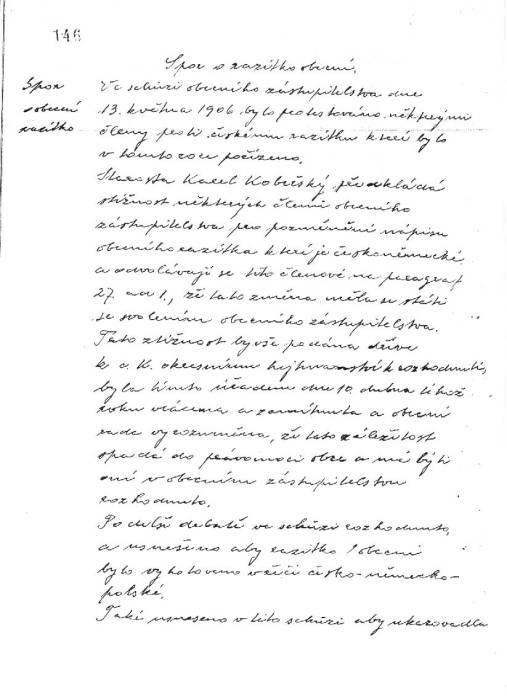 146
Spor o razítko obecní.
Spor
o obecní
razítko
Ve schůzi obecního zástupitelstva dne
13. května 1906 bylo protestováno některými
členy proti českému razítku které bylo
v tomto roce pořízeno.
Starosta Karel Kobežský předkládá
stížnost některých členů obecního
zástupitelstva pro pozměnění nápisu
obecního razítka které je českoněmecké
a odvolávají se tito členové na paragraf
27. ad 1., že tato změna měla se státi
se svolením obecního zástupitelstva.
Tato ztížnost byvše podána dříve
k c. K. okresnímu hejtmanství k rozhodnutí,
byla tímto úřadem dne 10. dubna téhož
roku vrácena a zamítnuta a obecní
rada vyrozuměna, že tato záležitost
spadá do pravomoci obce a má býti
v obecním zástupitelstvu
rozhodnuto.
Po delší debatě ve schůzi rozhodnuto,
a usneseno aby razítko obecní
bylo vyhotoveno v řeči česko-německo-
polské.
Také usneseno v této schůzi aby ukazovadla